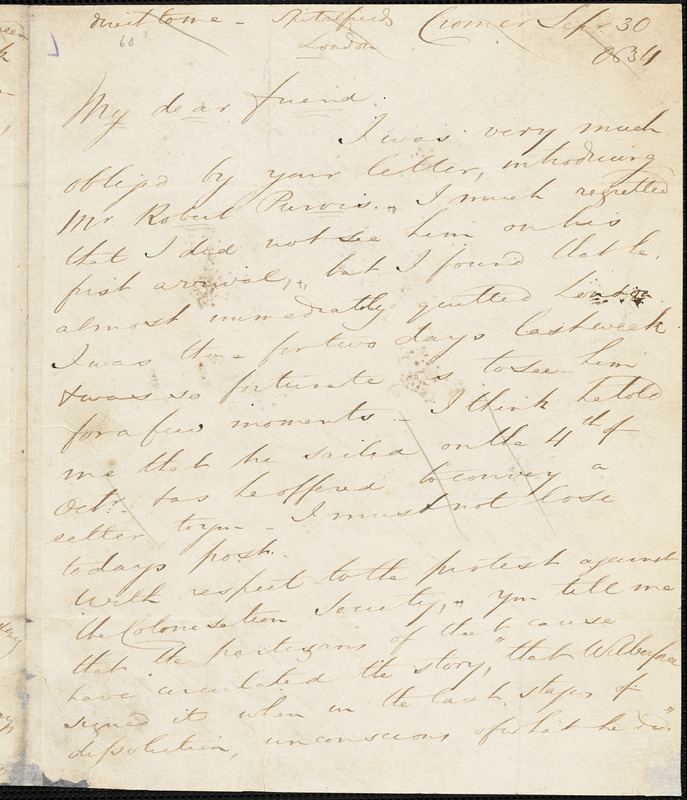 direct to me - Spitalfields Cromer Sepr 30
London 1834
My dear friend.
I was very much
oblig'd by your letter, introducing
Mr Robert Purvis. I much regretted
that I did not see him on his
first arrival, but I found that he
almost immediately quitted London
I was there for two days last week
& was so fortunate as to see him
for a few moments - I think he told
me that he sailed on the 4th of
Octr. & as he offered to convey a
letter to you - I must not lose
todays post. -
With respect to the protest against
the Colonisation Society, - you tell me
that the partizans of that cause
have circulated the story, "that Wilberforce
signed it when in the last stages of
dissolution, unconscious of what he did".